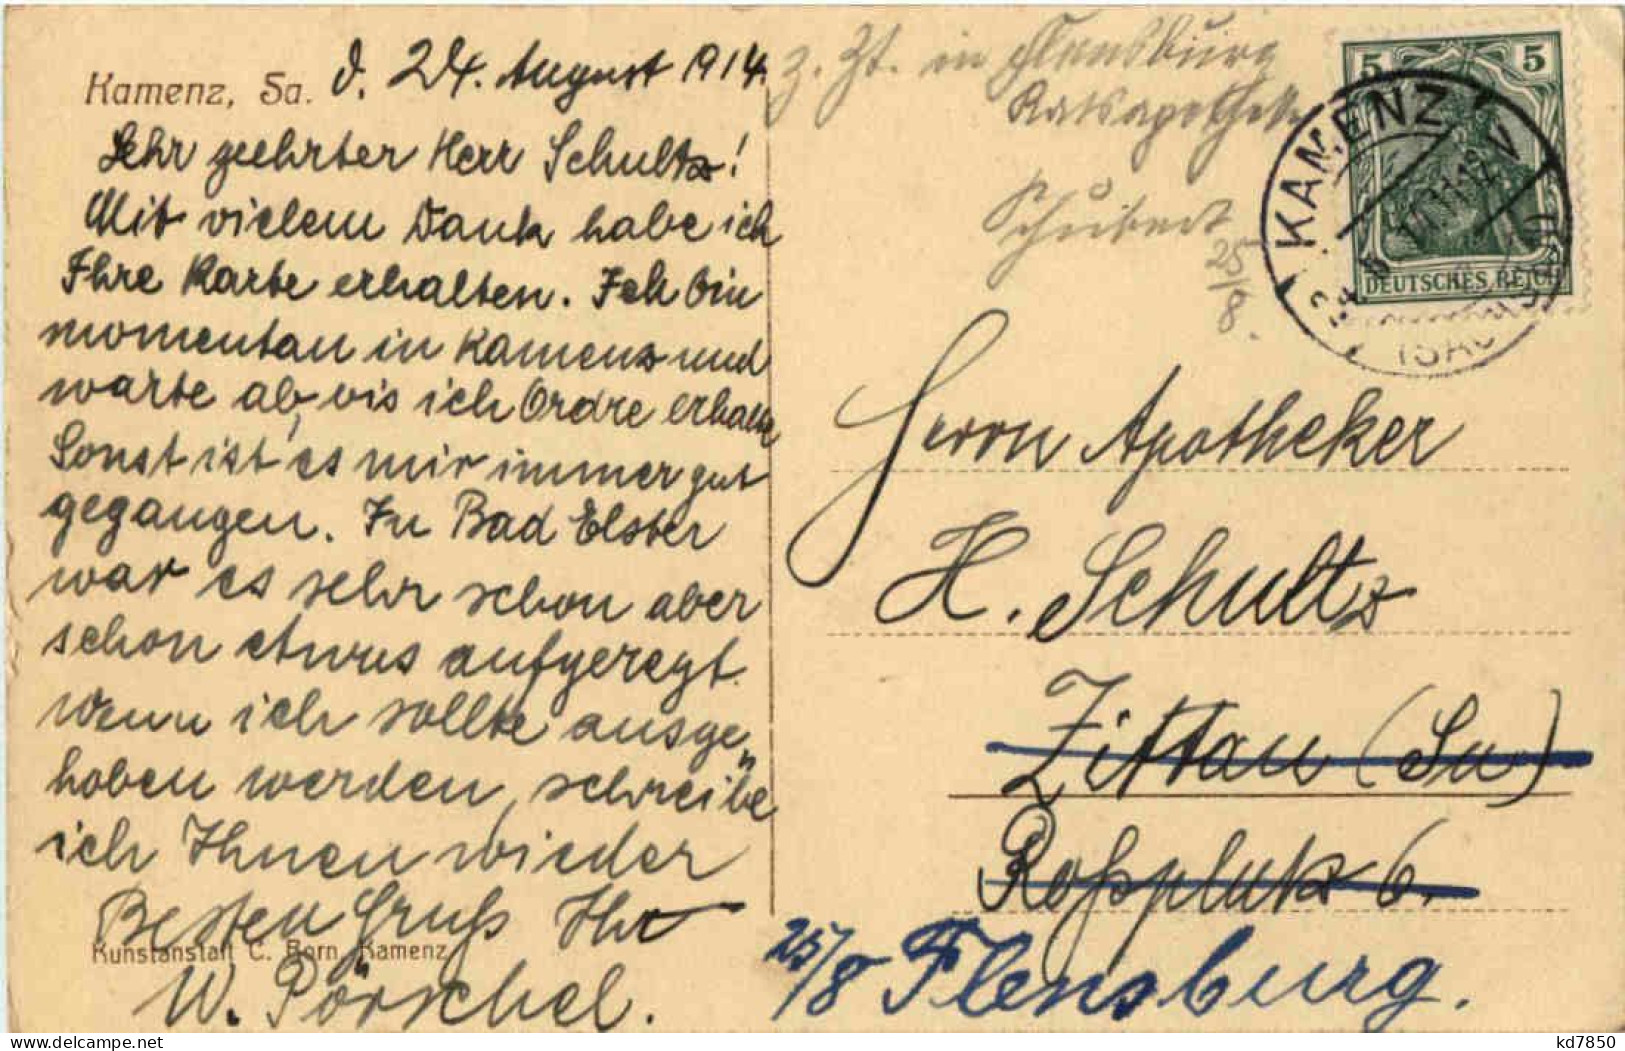 Kamenz, Sa. d. 24. August 1914.
Sehr geehrter Herr Schultz!
Mit vielem Dank habe ich
Ihre Karte erhalten. Ich bin
momentan in Kamenz und
warte ab, bis ich Ordre erhalte
Sonst ist es mir immer gut
gegangen. In Bad Elster
war es sehr schon aber
schon etwas aufgeregt.
Wenn ich sollte ausge„
hoben werden, schreibe
ich Ihnen wieder
Besten Gruß Ihr
W. Pörschel.
Kunstanstalt C. Born, Kamenz
z. Zt. in Flensburg
Ratsapotheke
25/8.
5 5
DEUTSCHES REICH
KAMENZ
Herrn Apotheker
H. Schultz
Zittau (Sa)
Roßplatz 6.
25/8 Flensburg.
kd7850